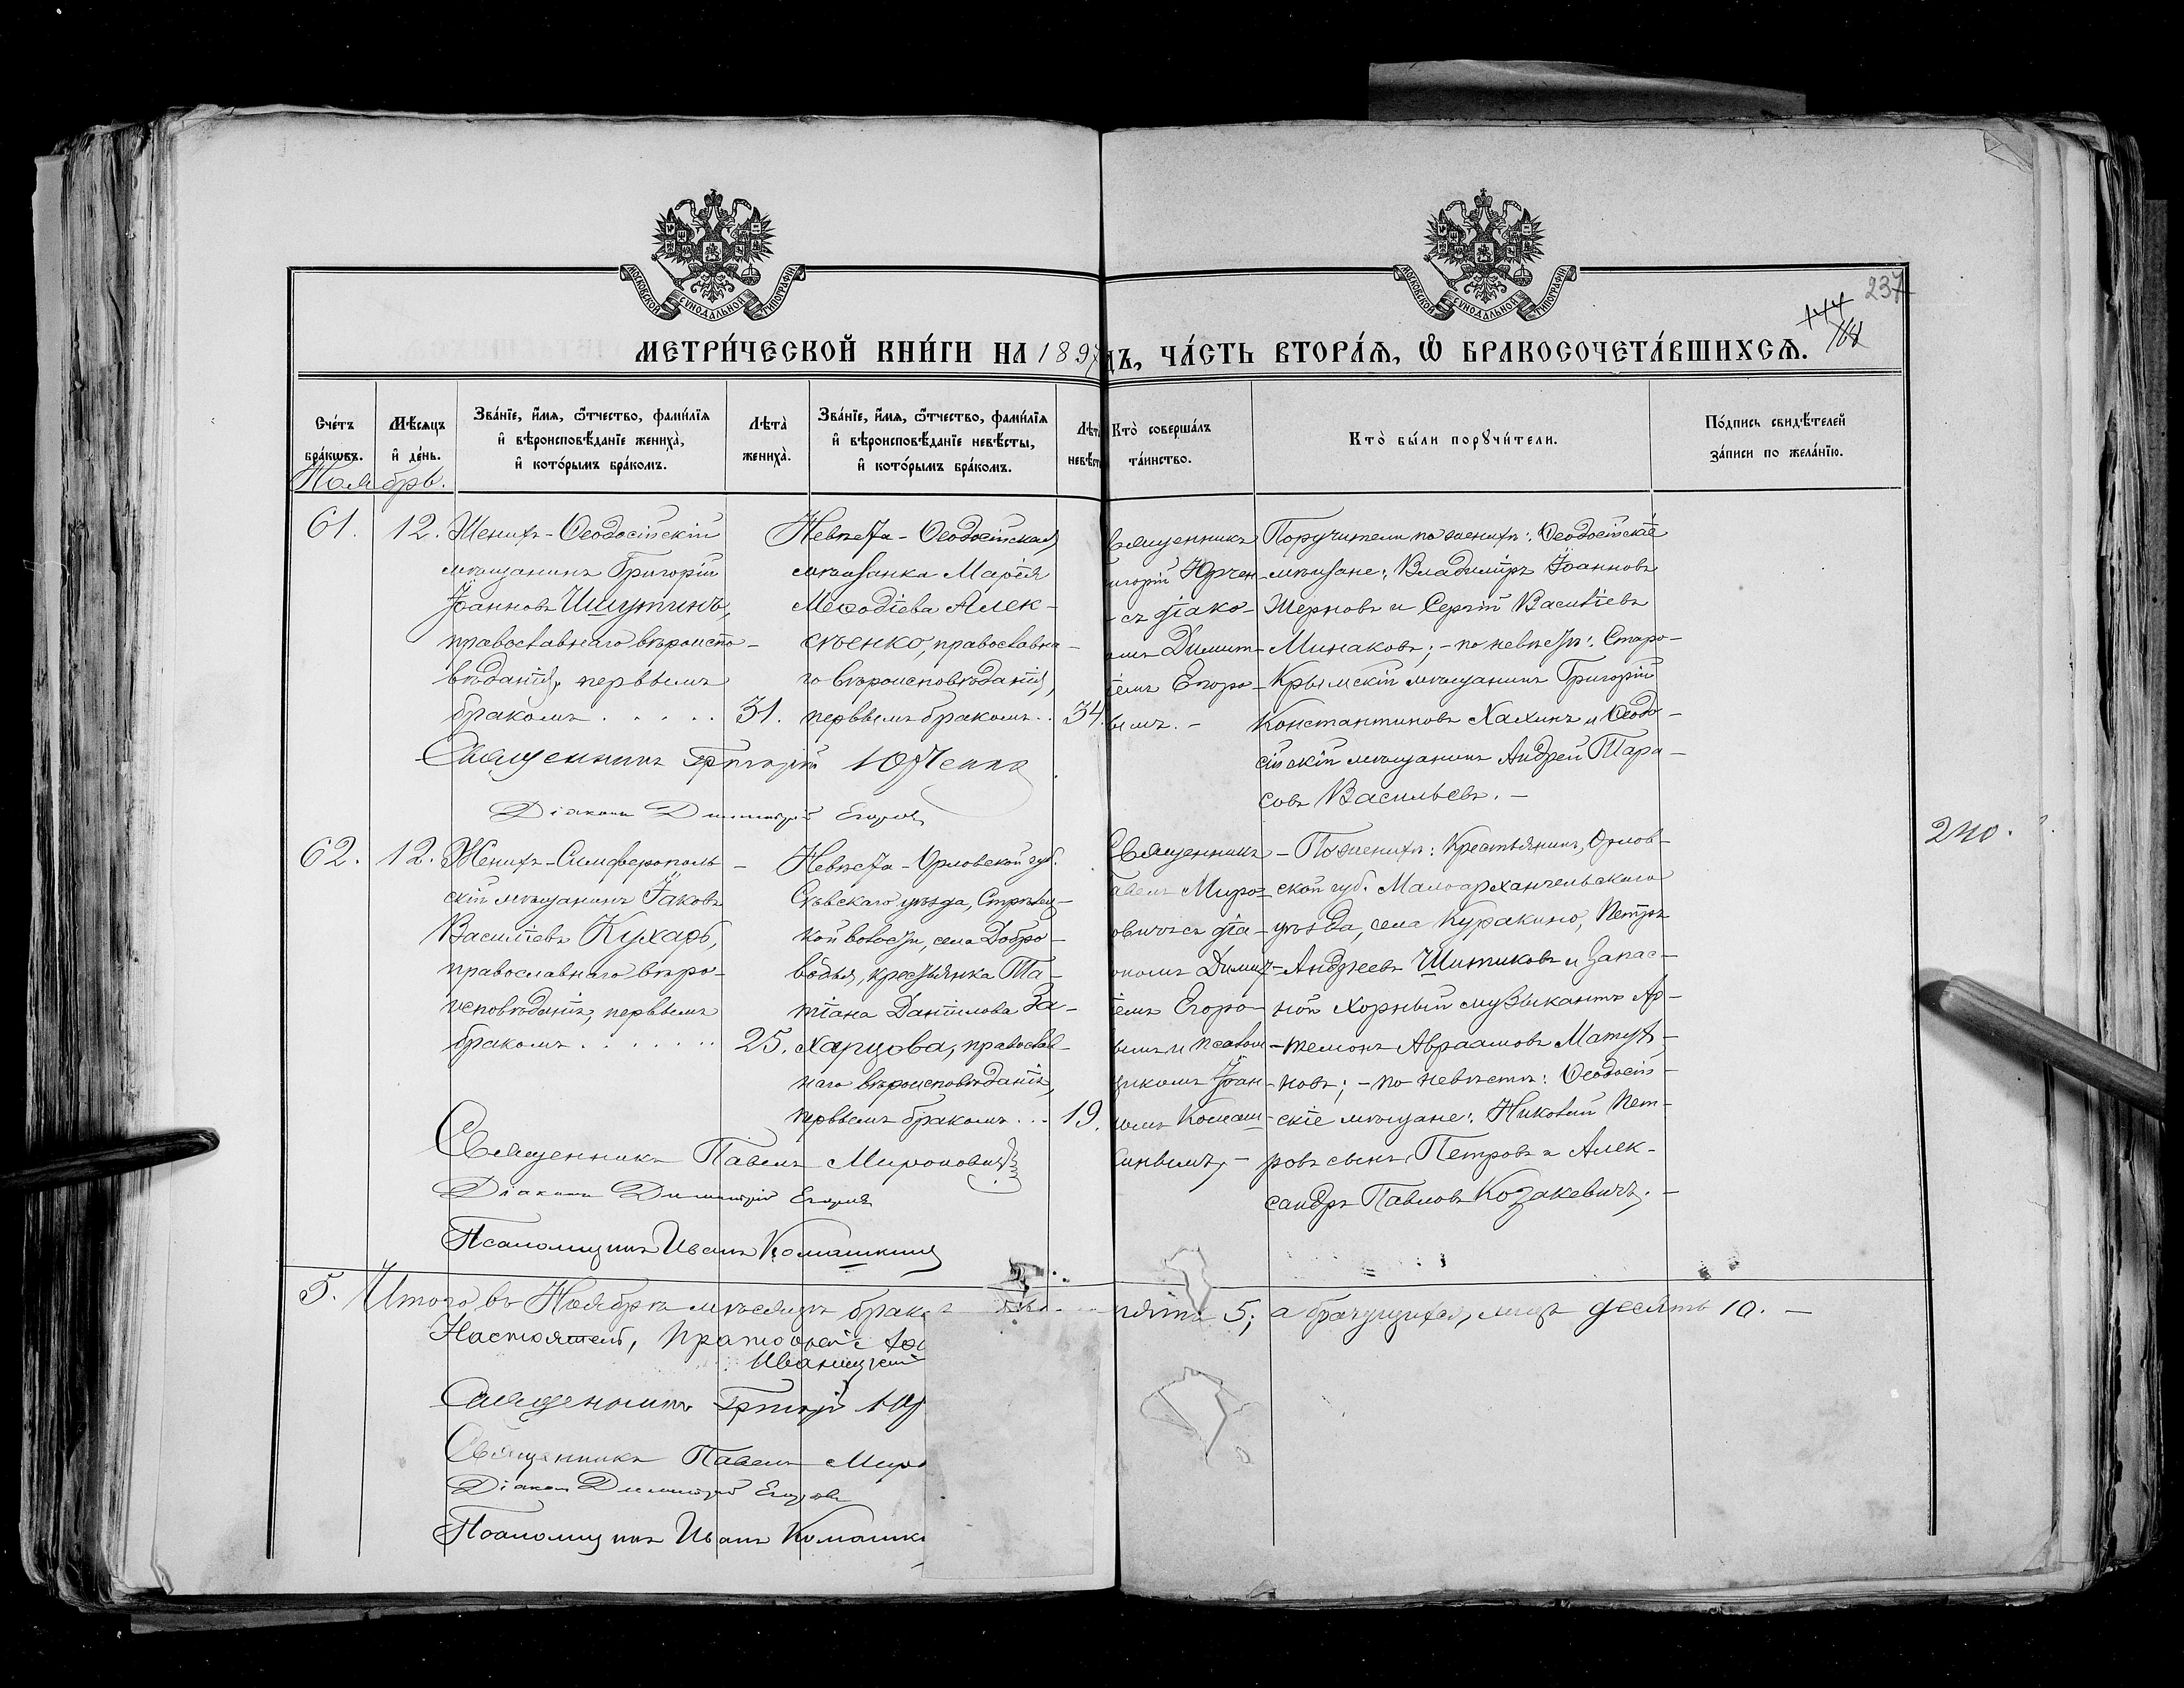 МОСКОВСКОЙ СѴНОДАЛЬНОЙ ТИПОГРАФІИ
МОСКОВСКОЙ СѴНОДАЛЬНОЙ ТИПОГРАФІИ
237
144
МЕТРИ́ЧЕСКОЙ КНИ́ГИ НА 1897
ДЪ, ЧА́СТЬ ВТОРА́Ѧ, Ѡ БРАКОСОЧЕТА́ВШИХСѦ.
Сче́тъ бра́кѡвъ.
Мѣ́сѧцъ и҆ де́нь.
Зва́нїе, и҆́мѧ, ѻ҆́тчество, фами́лїѧ и҆ вѣроисповѣ́данїе жениха̀, и҆ кото́рымъ бра́комъ.
Лѣта̀ жениха̀.
Зва́нїе, и҆́мѧ, ѻ҆́тчество, фами́лїѧ и҆ вѣроисповѣ́данїе невѣ́сты, и҆ кото́рымъ бра́комъ.
Лѣта невѣст
Кто̀ соверша́лъ та́инство.
Кто̀ бы́ли порꙋчи́тели.
По́дпись свидѣ́телей за́писи по жела́нїю.
Ноябрь.
61.
12.
Женихъ - Ѳеодосійскій
мѣщанинъ Григорій
Іоанновъ Шишутинъ,
православнаго вѣроиспо-
вѣданія, первымъ
бракомъ . . . . .
31.
Невѣста - Ѳеодосійская
мѣщанка Марія
Меѳодіева Алек-
сѣенко, православна-
го вѣроисповѣданія,
первымъ бракомъ . .
34.
Священникъ
игорій Юрчен-
- съ діако-
омъ Димит-
іемъ Егоро-
вымъ. -
Поручители по женихѣ: Ѳеодосійскіе
мѣщане: Владиміръ Іоанновъ
Жерновъ и Сергій Васильевъ
Минаковъ; - по невѣстѣ: Старо-
Крымскій мѣщанинъ Григорій
Константиновъ Халинъ и Ѳеодо-
сійскій мѣщанинъ Андрей Тара-
совъ Васильевъ. -
Священникъ Григорій Юрченко
Діаконъ Димитрій Егоровъ
62.
12.
Женихъ - Симферополь-
скій мѣщанинъ Іаковъ
Василіевъ Кухарь,
православнаго вѣро-
исповѣданія, первымъ
бракомъ . . . . . . .
25.
Невѣста - Орловской губ.
Сѣвскаго уѣзда, Стрѣлец-
кой волости, села Добро-
водья, крестьянка Та-
тіана Даніилова За-
харцова, православ-
наго вѣроисповѣданія,
первымъ бракомъ . . .
19.
Священникъ
авелъ Миро-
овичъ съ діа-
кономъ Димит-
іемъ Егоро-
вымъ и псалом-
щикомъ Іоан-
номъ Комаш-
кинымъ, -
- По женихѣ: Крестьянинъ, Орлов-
ской губ. Малоархангельскаго
уѣзда, села Куракино, Петръ
Андреевъ Шитиковъ и запас-
ной хорный музыкантъ Ар-
темонъ Авраамовъ Матуя-
новъ; - по невѣстѣ: Ѳеодосій-
скіе мѣщане: Николай Пет-
ровъ сынъ Петровъ и Алек-
сандръ Павловъ Козакевичъ. -
240.
Священникъ Павелъ Мироновичъ
Діаконъ Димитрій Егоровъ
Псаломщикъ Иванъ Комашкинъ
5.
Итого въ Ноябрѣ мѣсяцѣ брак
пять 5; а брачущихся лицъ десять 10. -
Настоятель, протоіерей
Иваницкій
Священникъ Григорій Юр
Священникъ Павелъ Миро
Діаконъ Димитрій Егоровъ
Псаломщикъ Иванъ Комашк